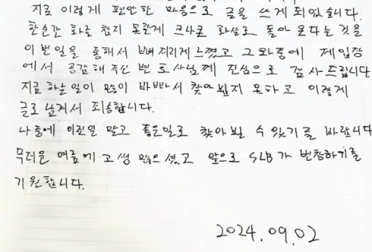 지금 이렇게 편안한 마음으로 글을 쓰게 되었습니다.
한순간 화를 참지 못한게 크나큰 화살로 돌아 온다는 것을
이번일을 통해서 뼈저리게 느꼈고 그와중에 제입장
에서 공감해주신 변호사님께 진심으로 감사드립니다
지금 하는 일이 많이 바빠서 찾아뵙지 못하고 이렇게
글로 남겨서 죄송합니다.
나중에 이런일 말고 좋은일로 찾아뵐 수 있기를 바랍니다
무더운 여름에 고생 많으셨고 앞으로 SLB가 번창하기를
기원합니다.
2024.09.02